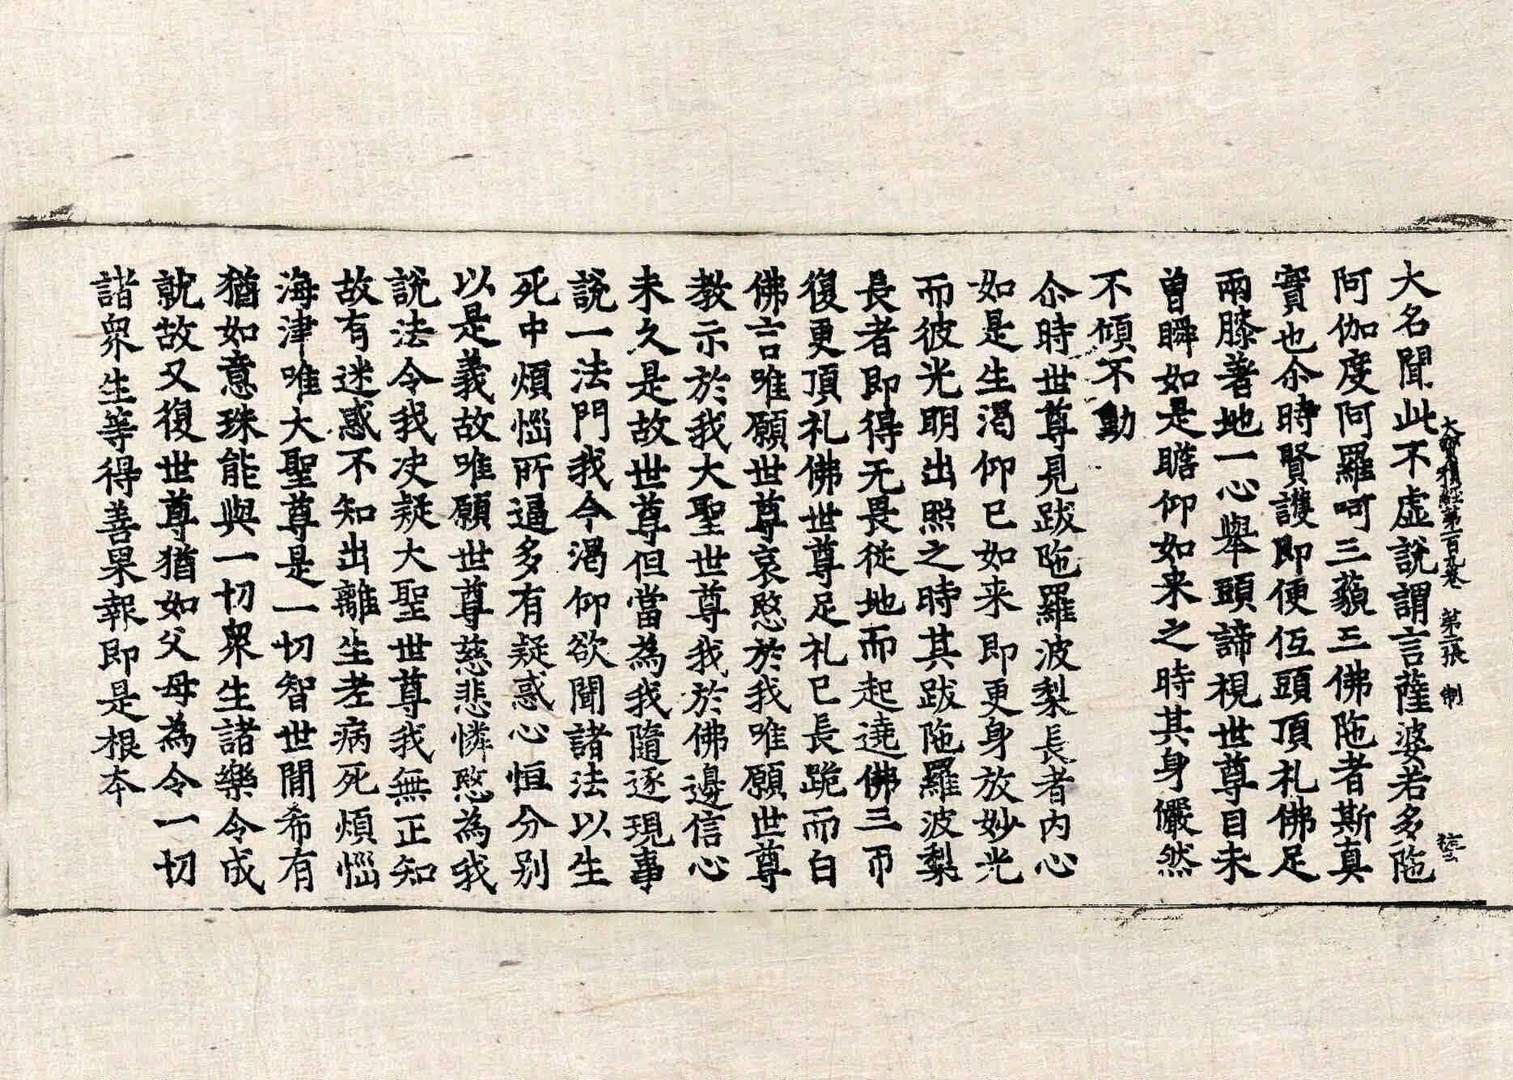 大寶積經第一百九卷 第二張 制
大名聞此不虛說謂言薩婆若多陁
阿伽度阿羅呵三藐三佛陁者斯真
實也尒時賢護即便伍頭頂礼佛足
兩膝著地一心舉頭諦視世尊目未
曾瞬如是瞻仰如来之時其身儼然
不傾不動
尒時世尊見跋陁羅波梨長者内心
如是生渴仰已如来即更身放妙光
而彼光明出照之時其跋陁羅波梨
長者即得无畏從地而起遶佛三帀
復更頂礼佛世尊足礼已長跪而白
佛言唯願世尊哀愍於我唯願世尊
教示於我大聖世尊我於佛邊信心
未久是故世尊但當為我隨逐現事
說一法門我今渴仰欲聞諸法以生
死中煩惱所逼多有疑惑心恒分别
以是義故唯願世尊慈悲憐愍為我
說法令我决疑大聖世尊我無正知
故有迷惑不知出離生老病死煩惱
海津唯大聖尊是一切智世間希有
猶如意珠能與一切衆生諸樂令成
就故又復世尊猶如父母為令一切
諸衆生等得善果報即是根夲